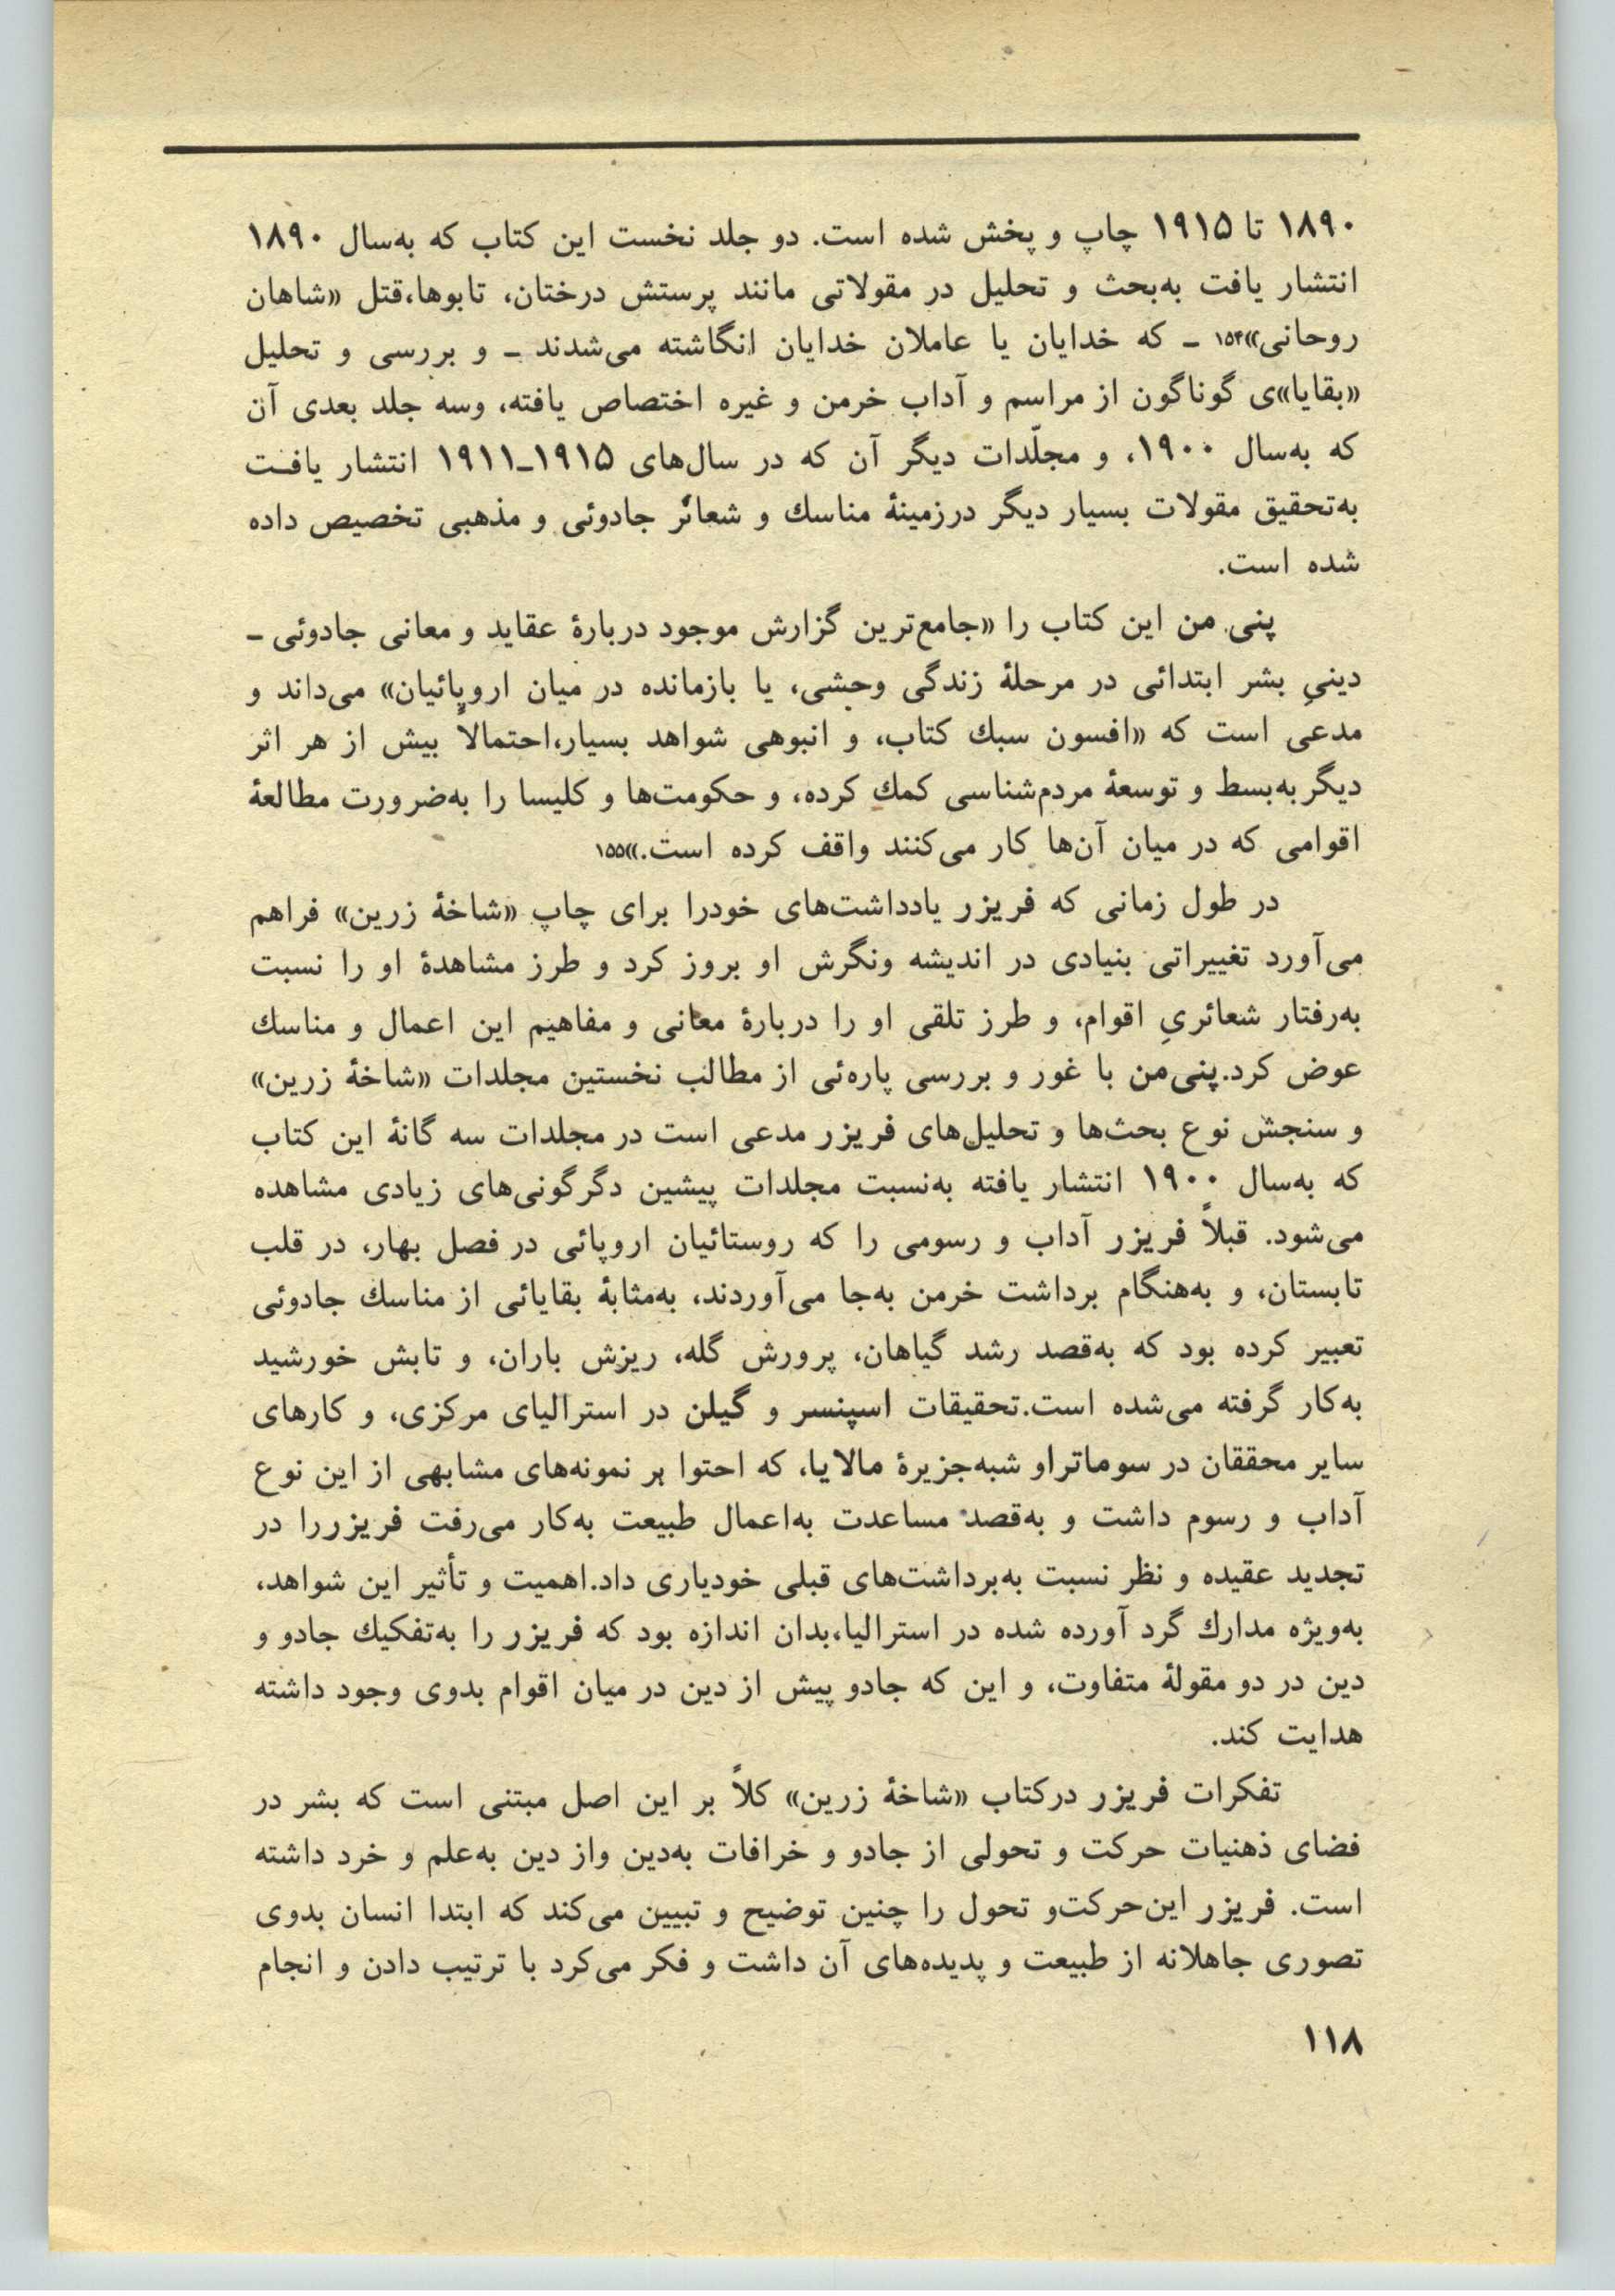 ۱۸۹۰ تا ۱۹۱۵ چاپ و پخش شده است. دو جلد نخست این کتاب که به‌سال ۱۸۹۰
انتشار یافت به‌بحث و تحلیل در مقولاتی مانند پرستش درختان، تابوها،قتل «شاهان
روحانی»۱۵۴ ـ که خدایان یا عاملان خدایان انگاشته می‌شدند ـ و بررسی و تحلیل
«بقایا»ی گوناگون از مراسم و آداب خرمن و غیره اختصاص یافته، وسه جلد بعدی آن
که به‌سال ۱۹۰۰، و مجلّدات دیگر آن که در سال‌های ۱۹۱۵ـ۱۹۱۱ انتشار یافـت
به‌تحقیق مقولات بسیار دیگر درزمینهٔ مناسك و شعائر جادوئی و مذهبی تخصیص داده
شده است.
پنی من این کتاب را «جامع‌ترین گزارش موجود دربارهٔ عقاید و معانی جادوئی ـ
دینیِ بشر ابتدائی در مرحلهٔ زندگی وحشی، یا بازمانده در میان اروپائیان» می‌داند و
مدعی است که «افسون سبك کتاب، و انبوهی شواهد بسیار،احتمالاً بیش از هر اثر
دیگر به‌بسط و توسعهٔ مردم‌شناسی کمك کرده، و حکومت‌ها و کلیسا را به‌ضرورت مطالعهٔ
اقوامی که در میان آن‌ها کار می‌کنند واقف کرده است.»۱۵۵
در طول زمانی که فریزر یادداشت‌های خودرا برای چاپ «شاخهٔ زرین» فراهم
می‌آورد تغییراتی بنیادی در اندیشه ونگرش او بروز کرد و طرز مشاهدهٔ او را نسبت
به‌رفتار شعائریِ اقوام، و طرز تلقی او را دربارهٔ معانی و مفاهیم این اعمال و مناسك
عوض کرد.پنی‌من با غور و بررسی پاره‌ئی از مطالب نخستین مجلدات «شاخهٔ زرین»
و سنجش نوع بحث‌ها و تحلیل‌های فریزر مدعی است در مجلدات سه گانهٔ این کتاب
که به‌سال ۱۹۰۰ انتشار یافته به‌نسبت مجلدات پیشین دگرگونی‌های زیادی مشاهده
می‌شود. قبلاً فریزر آداب و رسومی را که روستائیان اروپائی در فصل بهار، در قلب
تابستان، و به‌هنگام برداشت خرمن به‌جا می‌آوردند، به‌مثابهٔ بقایائی از مناسك جادوئی
تعبیر کرده بود که به‌قصد رشد گیاهان، پرورش گله، ریزش باران، و تابش خورشید
به‌کار گرفته می‌شده است.تحقیقات اسپنسر و گیلن در استرالیای مرکزی، و کارهای
سایر محققان در سوماتراو شبه‌جزیرهٔ مالایا، که احتوا بر نمونه‌های مشابهی از این نوع
آداب و رسوم داشت و به‌قصد مساعدت به‌اعمال طبیعت به‌کار می‌رفت فریزررا در
تجدید عقیده و نظر نسبت به‌برداشت‌های قبلی خودیاری داد.اهمیت و تأثیر این شواهد،
به‌ویژه مدارك گرد آورده شده در استرالیا،بدان اندازه بود که فریزر را به‌تفکیك جادو و
دین در دو مقولهٔ متفاوت، و این که جادو پیش از دین در میان اقوام بدوی وجود داشته
هدایت کند.
تفکرات فریزر درکتاب «شاخهٔ زرین» کلاً بر این اصل مبتنی است که بشر در
فضای ذهنیات حرکت و تحولی از جادو و خرافات به‌دین واز دین به‌علم و خرد داشته
است. فریزر این‌حرکت‌و تحول را چنین توضیح و تبیین می‌کند که ابتدا انسان بدوی
تصوری جاهلانه از طبیعت و پدیده‌های آن داشت و فکر می‌کرد با ترتیب دادن و انجام
۱۱۸